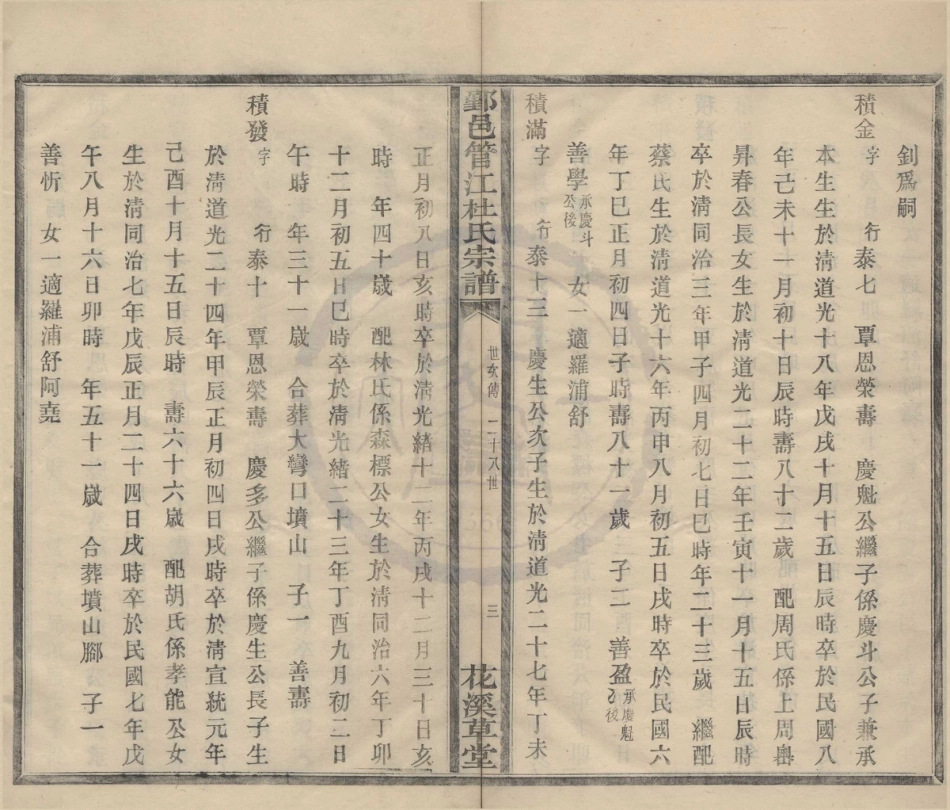 釗爲嗣
積金字 行泰七 覃恩榮壽 慶魁公繼子係慶斗公子兼承
本生生於清道光十八年戊戌十月十五日辰時卒於民國八
年己未十一月初十日辰時壽八十二歲 配周氏係上周嶴
昇春公長女生於清道光二十二年壬寅十一月十五日辰時
卒於清同治三年甲子四月初七日巳時年二十三歲 繼配
蔡氏生於清道光十六年丙申八月初五日戌時卒於民國六
年丁巳正月初四日子時壽八十一歲 子二 善盈承慶魁公後
善學承慶斗公後 女一適羅浦舒
積滿字 行泰十三 慶生公次子生於清道光二十七年丁未
鄞邑管江杜氏宗譜 世次傳 二十八世 三 花溪草堂
正月初八日亥時卒於清光緒十二年丙戌十二月三十日亥
時 年四十歲 配林氏係森標公女生於清同治六年丁卯
十二月初五日巳時卒於清光緒二十三年丁酉九月初二日
午時 年三十一歲 合葬大灣口墳山 子一 善壽
積發字 行泰十 覃恩榮壽 慶多公繼子係慶生公長子生
於清道光二十四年甲辰正月初四日戌時卒於清宣統元年
己酉十月十五日辰時 壽六十六歲 配胡氏係孝能公女
生於清同治七年戊辰正月二十四日戌時卒於民國七年戊
午八月十六日卯時 年五十一歲 合葬墳山腳 子一
善忻 女一適羅浦舒阿堯